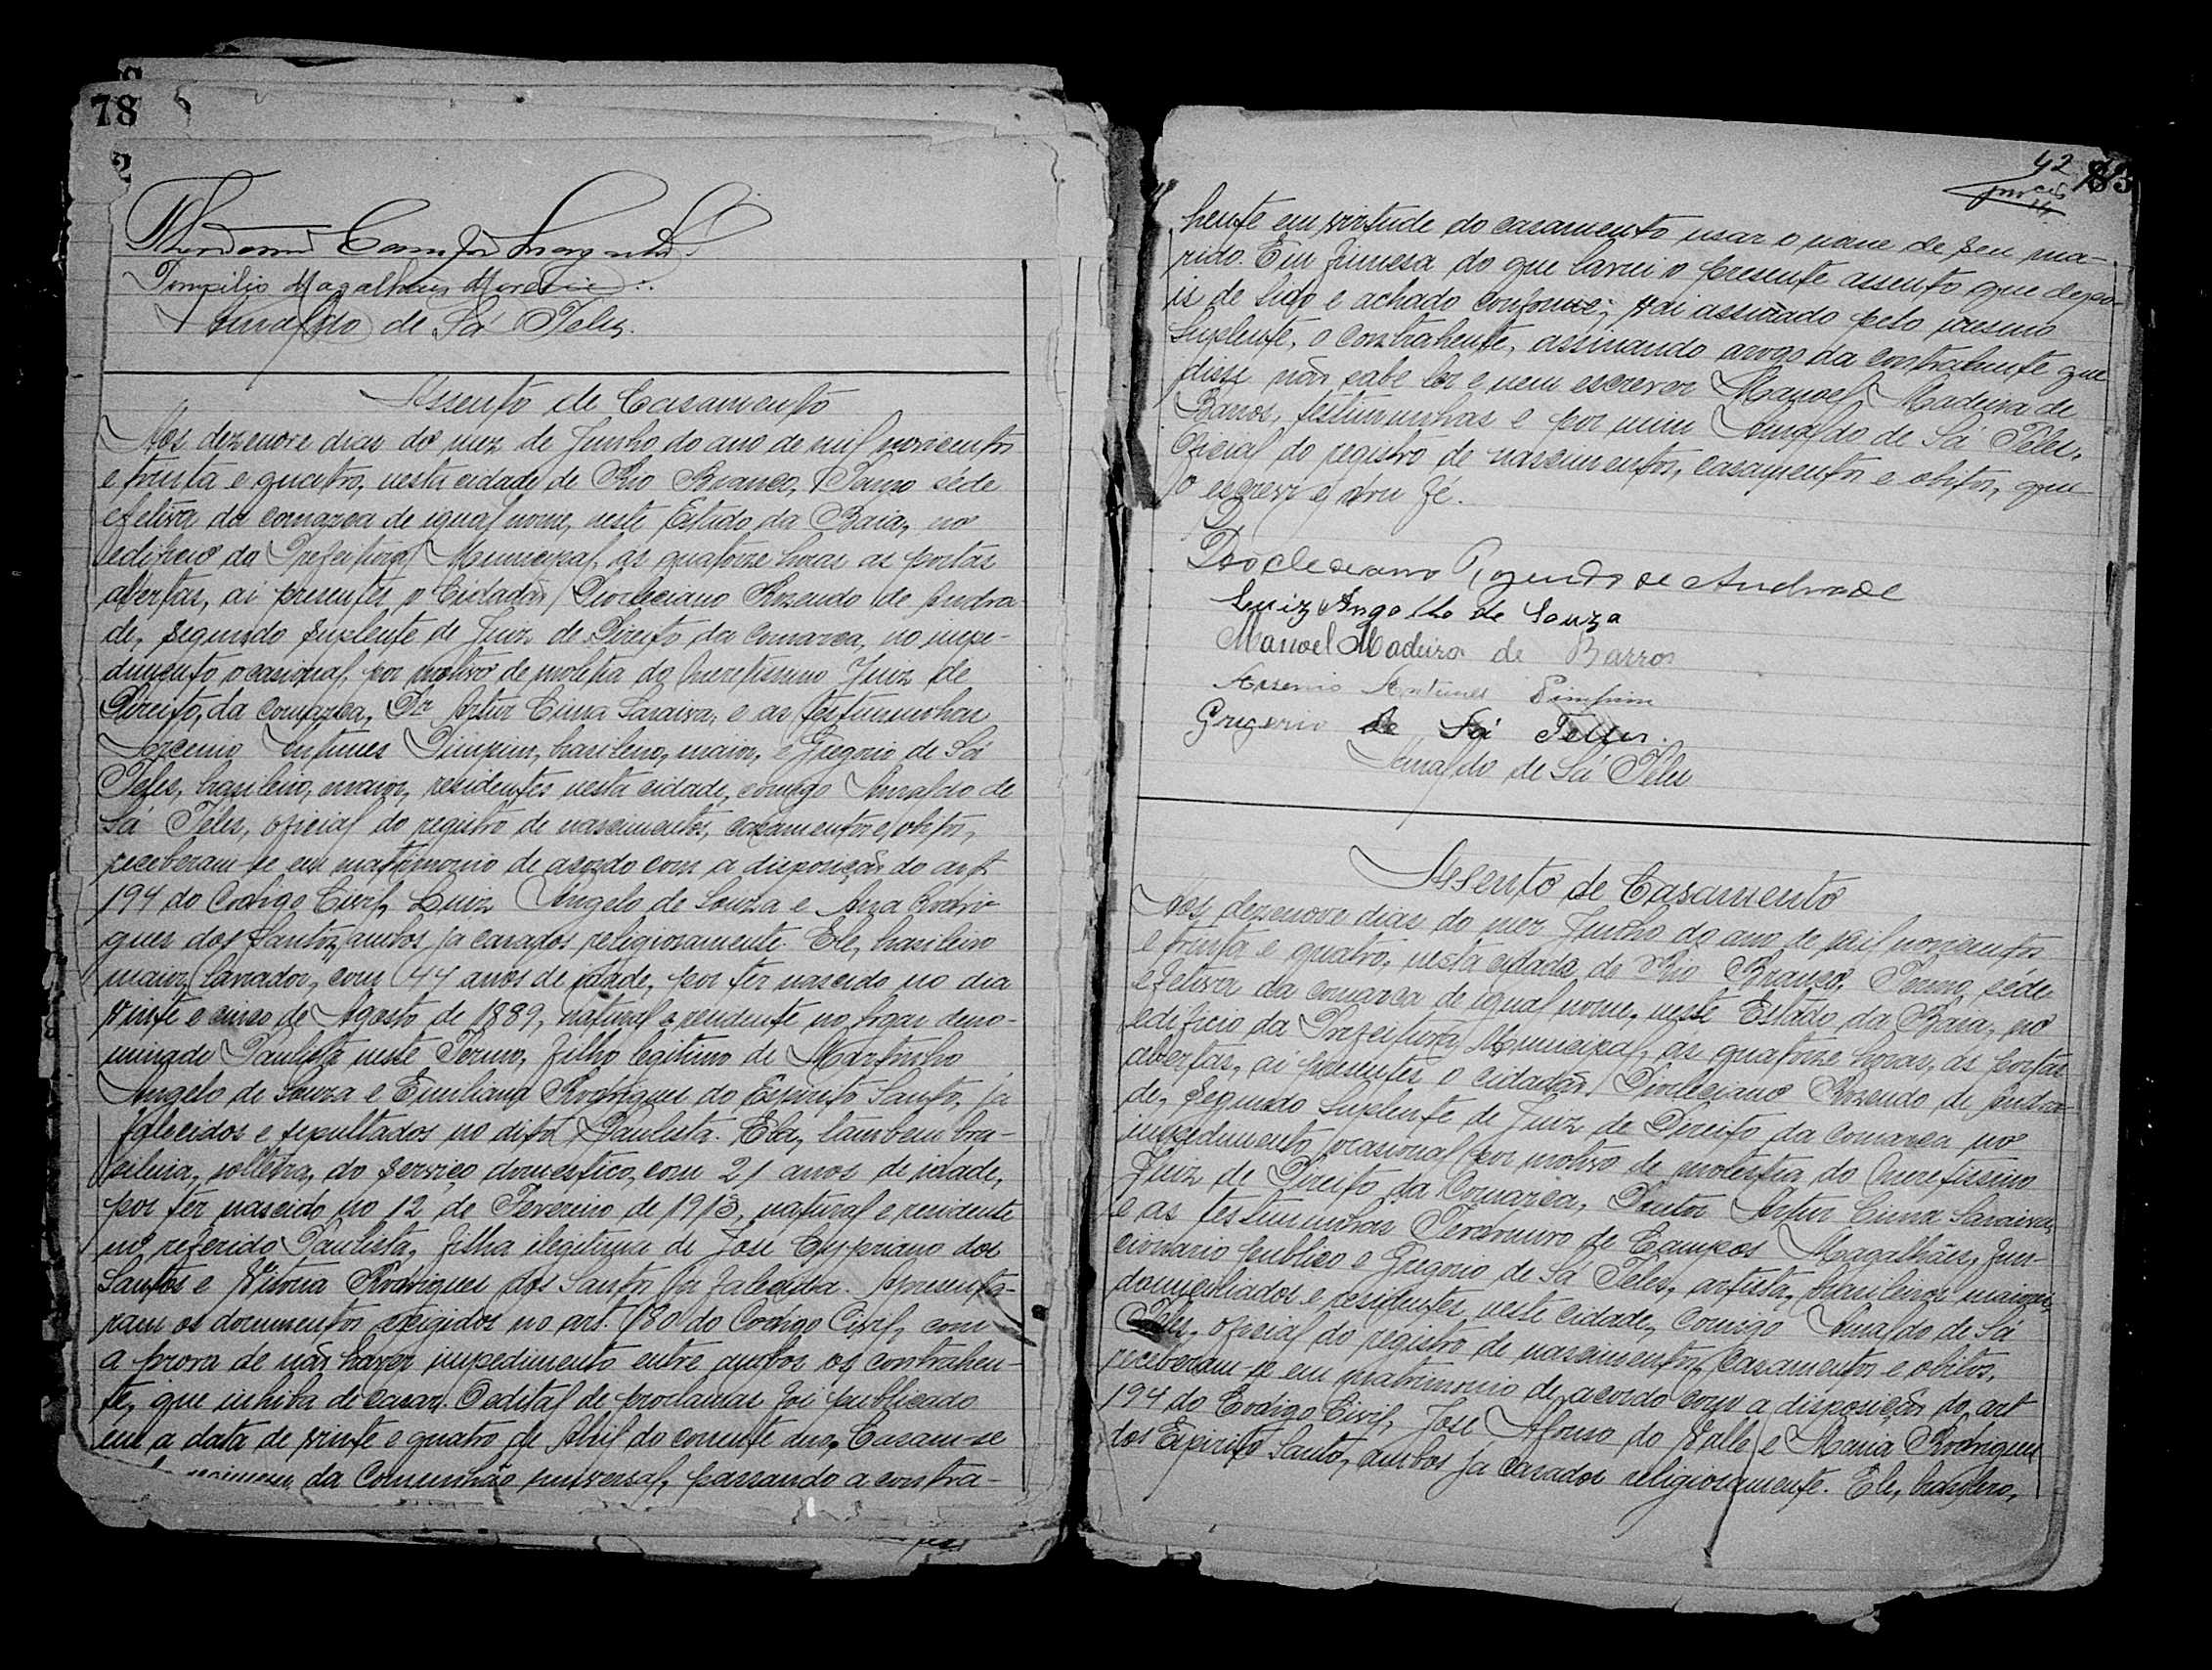 78
2
Pompilio Magalhães Moreira
Arnaldo de Sá Teles.
Assento de Casamento
Aos dezenove dias do mez de Junho do ano de mil novicentos
e trinta e quatro, nesta cidade de Rio Branco, Termo séde
efetiva da comarca de igual nome, neste Estado da Baia, no
edificio da Prefeitura Municipal, ás quatorze horas as portas
abertas, ai presentes o Cidadão Diocleciano Rozendo de Andra-
de, segundo suplente de Juiz de Direito da comarca, no impe-
dimento ocasional, por motivo de moletia do Meretissimo Juiz de
Direito, da comarca, Dr Artur Cima Saraiva, e as testimunhas
Arcenio Antunes Pimpim, brasileiro, maior, e Gregorio de Sá
Teles, brasileiro, maior, residentes nesta cidade, comigo Arnaldo de
Sá Teles, oficial do registro de nascimentos, casamentos e obitos,
receberam-se em matrimonio de acordo com a disposição do art
194 do Codigo Civil, Luiz Angelo de Souza e Ana Rodri-
gues dos Santos, ambos já casados religiosamente. Ele, brasileiro
maior, lavrador, com 44 anos de idade, por ter nascido no dia
vinte e cinco de Agosto de 1889, natural e residente no logar deno-
minado Paulista neste Termo, filho legitimo de Martinho
Angelo de Souza e Emiliana Rodrigues do Espirito Santo, já
falecidos e sepultados no dito Paulista. Ela, tambem bra-
sileira, solteira, do serviço domestico, com 21 anos de idade,
por ter nascido no 12 de Fevereiro de 1913, natural e residente
no referido Paulista, filha ilegitima de José Cypriano dos
Santos e Vitoria Rodrigues dos Santos já falecida. Apresenta-
ram os documentos exigidos no art. 180 do Codigo Civil, com
a prova de não haver impedimento entre ambos os contrahen-
te, que inhiba de casar. O edital de proclamas foi publicado
em a data de vinte e quatro de Abril do corrente ano. Casam-se
da Comunhão universal, passando a contra-
42
83
hente em virtude do casamento usar o nome de seu ma-
rido. Em firmesa do que lavrei o presente assento que depo-
is de lido e achado conforme; vai assinado pelo mesmo
Suplente, o Contrahente, assinando arogo da contrahente que
disse não sabe ler e nem escrever Manoel Madeira de
Barros, testimunhas e por mim Arnaldo de Sá Teles,
Oficial do registro de nascimentos, casamentos e obitos, que
o escrevi e dou fé.
Diocleciano Rozendo de Andrade
Luiz Angello de Souza
Manoel Madeira de Barros
Arsenio Antunes Pimpim
Gregorio de Sá Telles.
Arnaldo de Sá Teles
Assento de Casamento
Aos dezenove dias do mez Junho do ano de mil novicentos
e trinta e quatro, nesta cidade de Rio Branco, Termo, séde
efetiva da comarca de igual nome, neste Estado da Baia, no
edificio da Prefeitura Municipal, as quatorze horas, ás portas
abertas, ai presentes o cidadão Diocleciano Rozendo de Andra-
de, Segundo Suplente de Juiz de Direito da comarca no
impedimento ocasional por motivo de molestia do Meretissimo
Juiz de Direito da Comarca, Doutor Artur Cima Saraiva,
e as testimunhas Teodomiro de Campos Magalhães, fun-
cionario publico e Gregorio de Sá Teles, artista, brasileiros maiores,
domiciliados e residentes neste cidade, Comigo Arnaldo de Sá
Teles, oficial do registro de nascimentos, casamentos e obitos,
receberam-se em matrimonio de acordo com a disposição do art
194 do Codigo Civil, José Afonso do Valle e Maria Rodrigues
dos Espirito Santo, ambos já casados religiosamente. Ele, brasileiro,